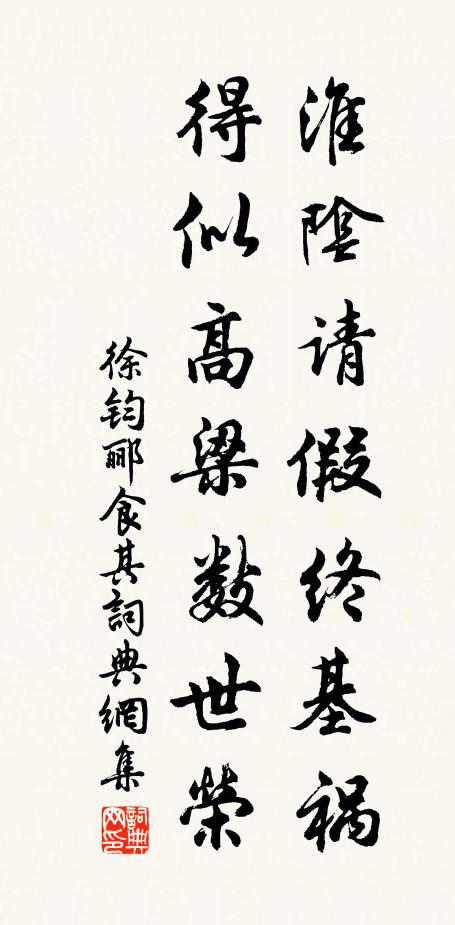 淮陰请假终基祸
得似高梁数世榮
徐钧郦食其詞典網集
詞典网印